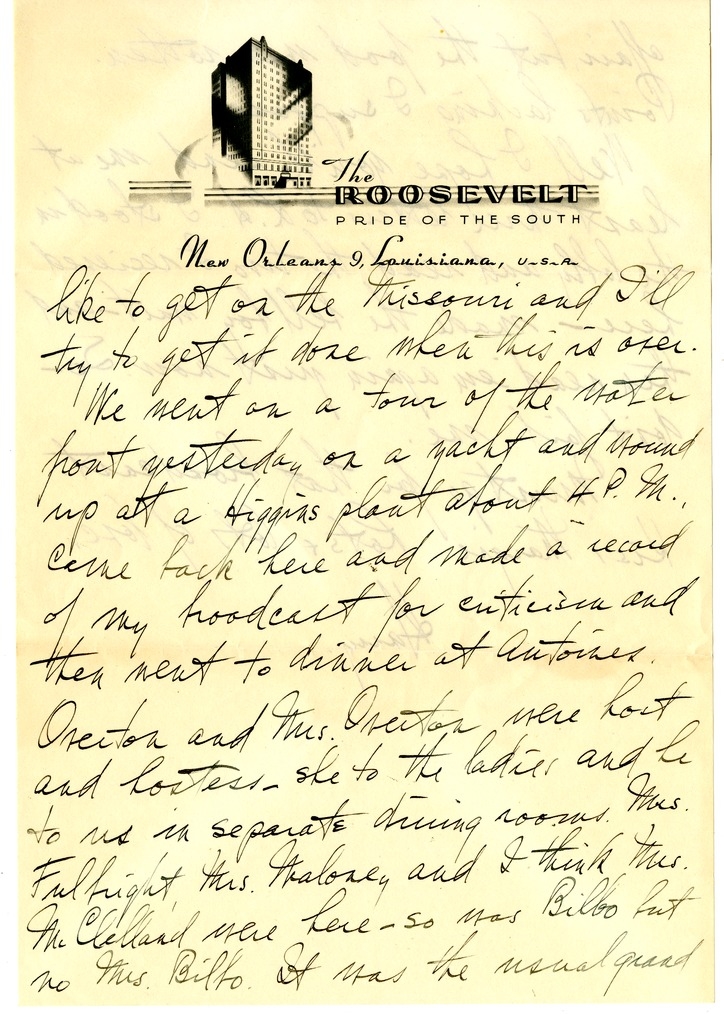 The
ROOSEVELT
PRIDE OF THE SOUTH
New Orleans 9, Louisiana, U-S-A
like to get on the Missouri and I'll
try to get it done when this is over.
We went on a tour of the water
front yesterday on a yacht and wound
up at a Higgins plant about 4 P. M.,
came back here and made a record
of my broadcast for criticism and
then went to dinner at Antoines.
Overton and Mrs. Overton were host
and hostess - she to the ladies and he
to us in separate dining rooms. Mrs.
Fulbright, Mrs. Maloney and I think Mrs.
McClelland were here - so was Bilbo but
no Mrs. Bilbo. It was the usual grand